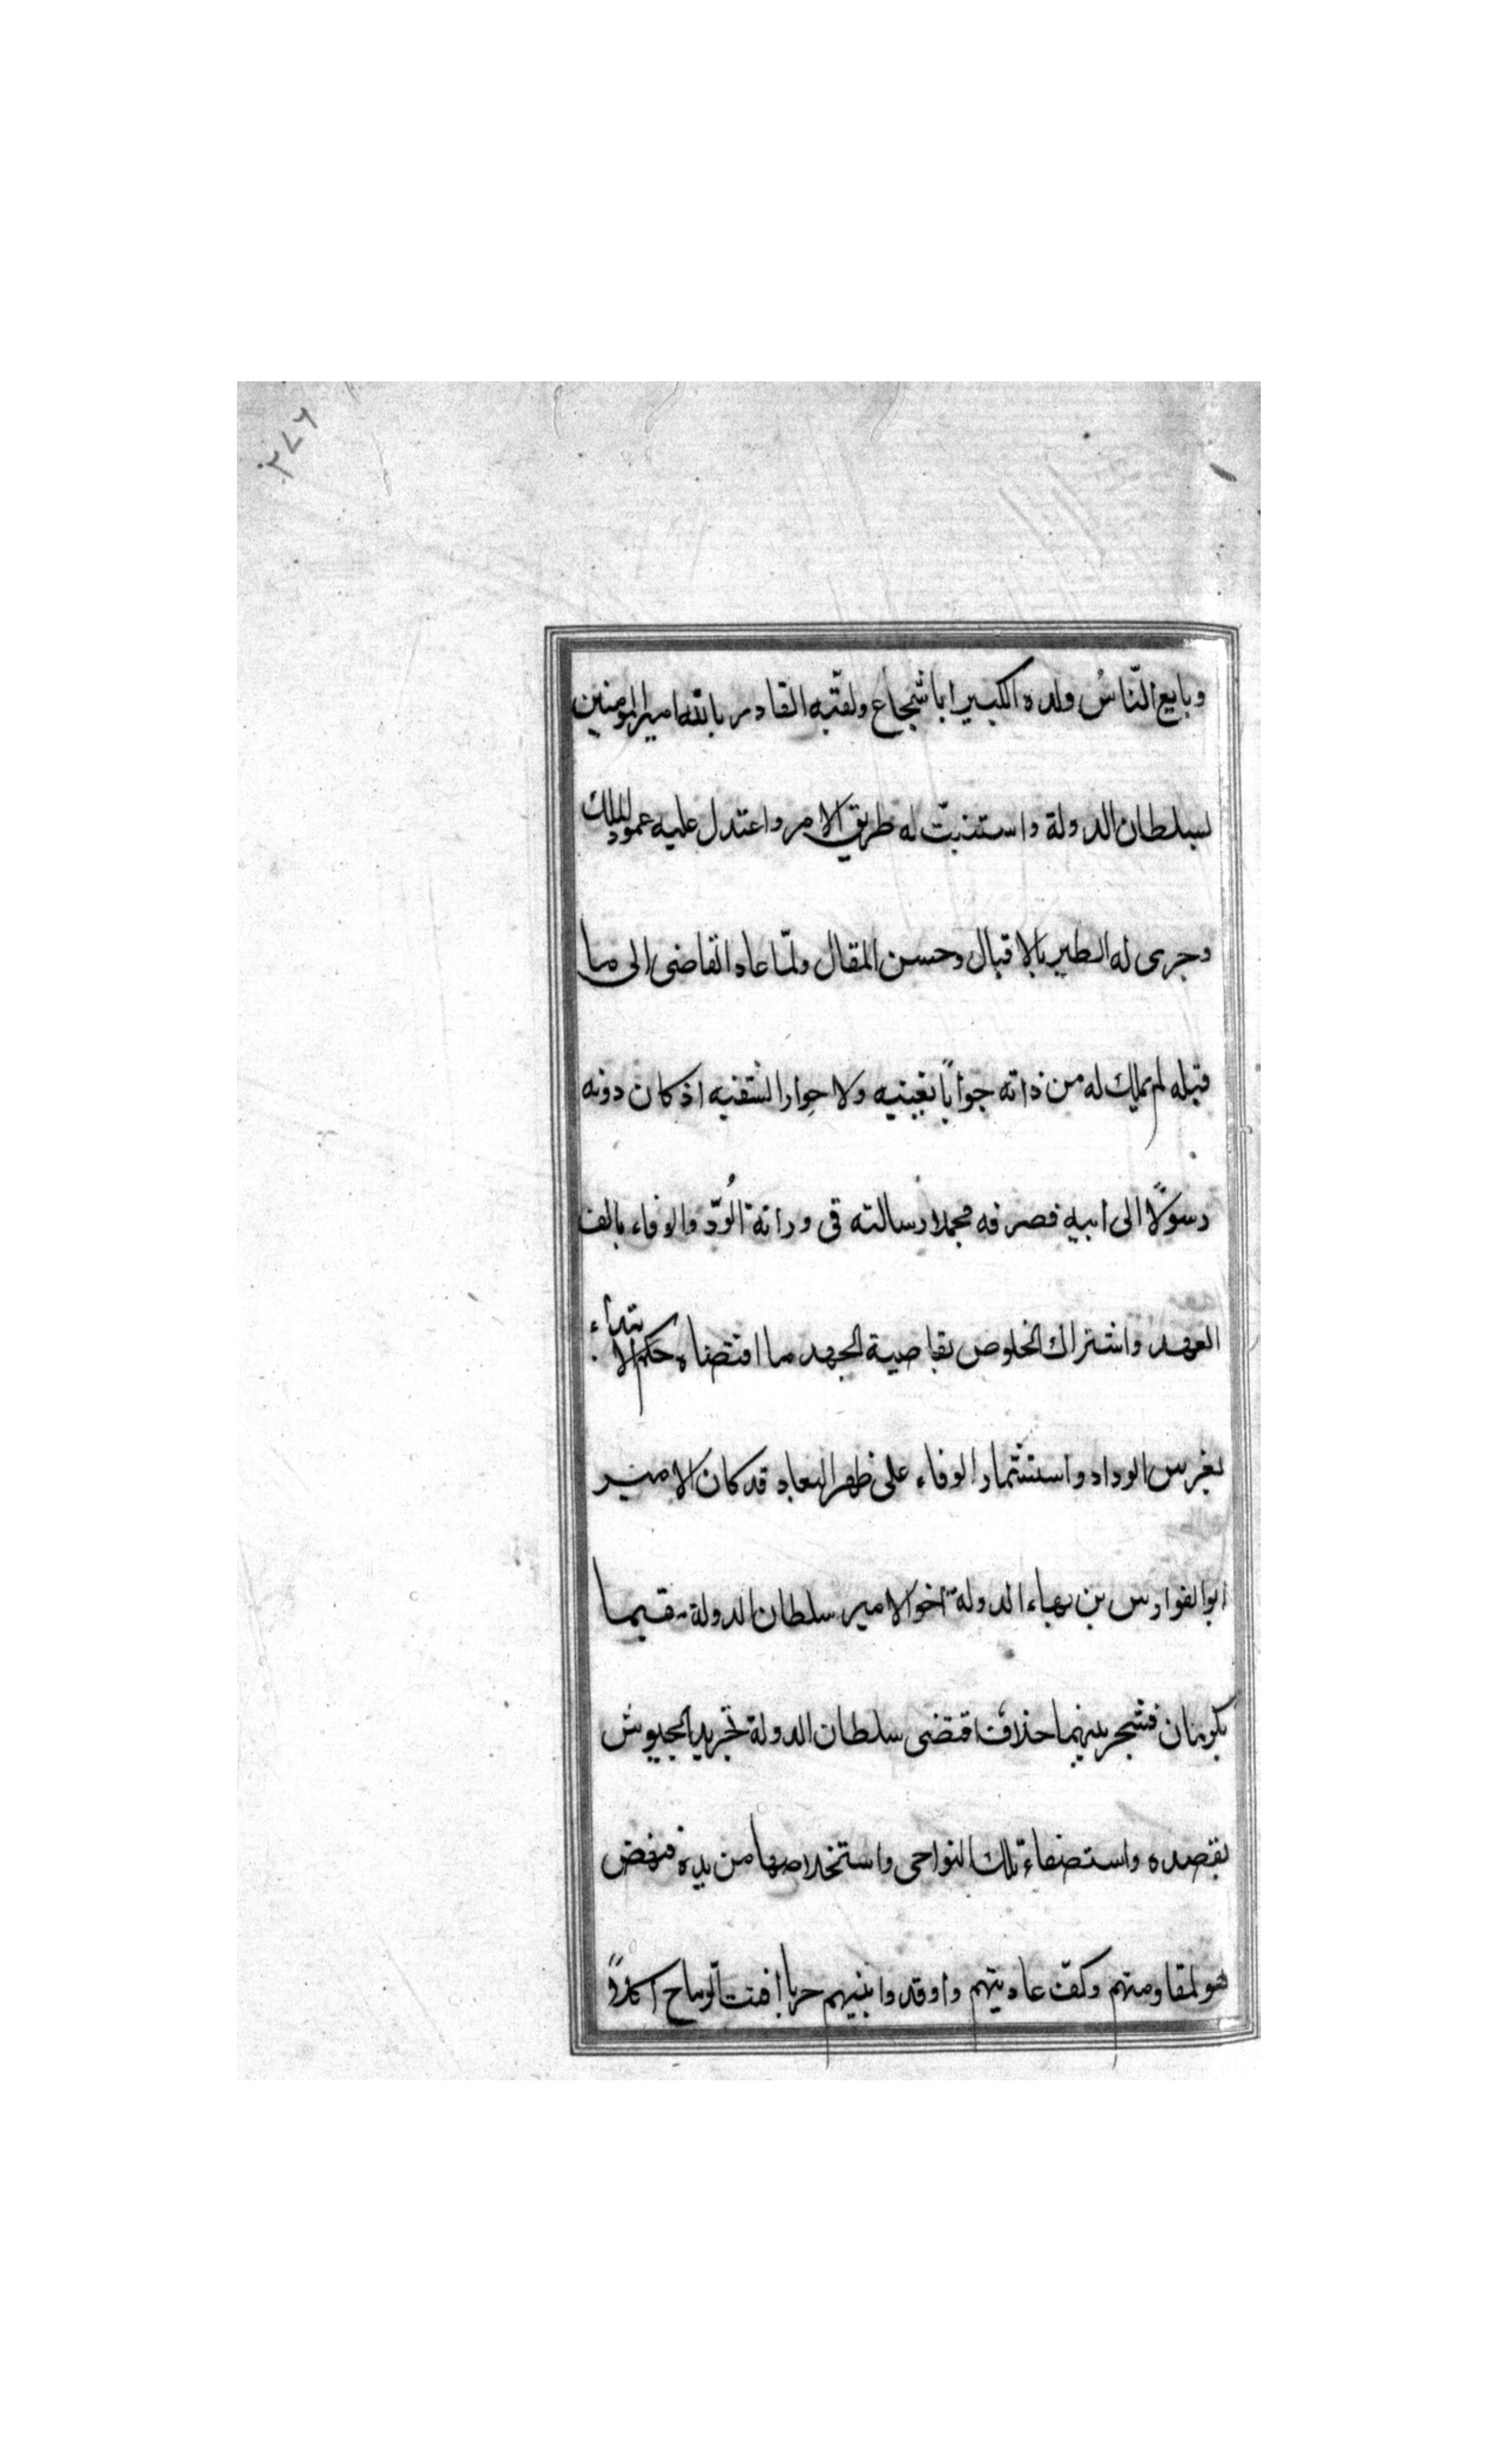 ٢٧٦
وبايع النّاسُ ولده الكبير ابا شجاع ولقّبه القادر بالله امير المومنين
لسلطان الدولة واستتبّت له طريق الامر واعتدل عليه عمود الملك
وجرى له الطير بالاقبال وحسن المقال ولمّا عاد القاضى الى ما
قبله لم يملك له من ذاته جواباً يغنيه ولا حوارا يشفيه اذ كان دونه
رسولًا الى ابيه فصرفه مجملا رسالته فى وراثة الُودّ والوفاء بالف
العهد واشتراك الخلوص بقاصية الجهد ما اقتضاه حكم الابتداء
بغرس الوداد واستثمار الوفاء على ظهر البعاد قد كان الامير
ابوالفوارس بن بهاء الدولة اخو الامير سلطان الدولة مقيما
بكرمان فشجر بينهما خلاف اقتضى سلطان الدولة تجريد الجيوش
بقصده واستصفاء تلك النواحى واستخلاصها من يده فنهض
هو لمقاومتهم وكفّ عاديتهم واوقدوا بينهم حربا افنت الرماح اكلاً